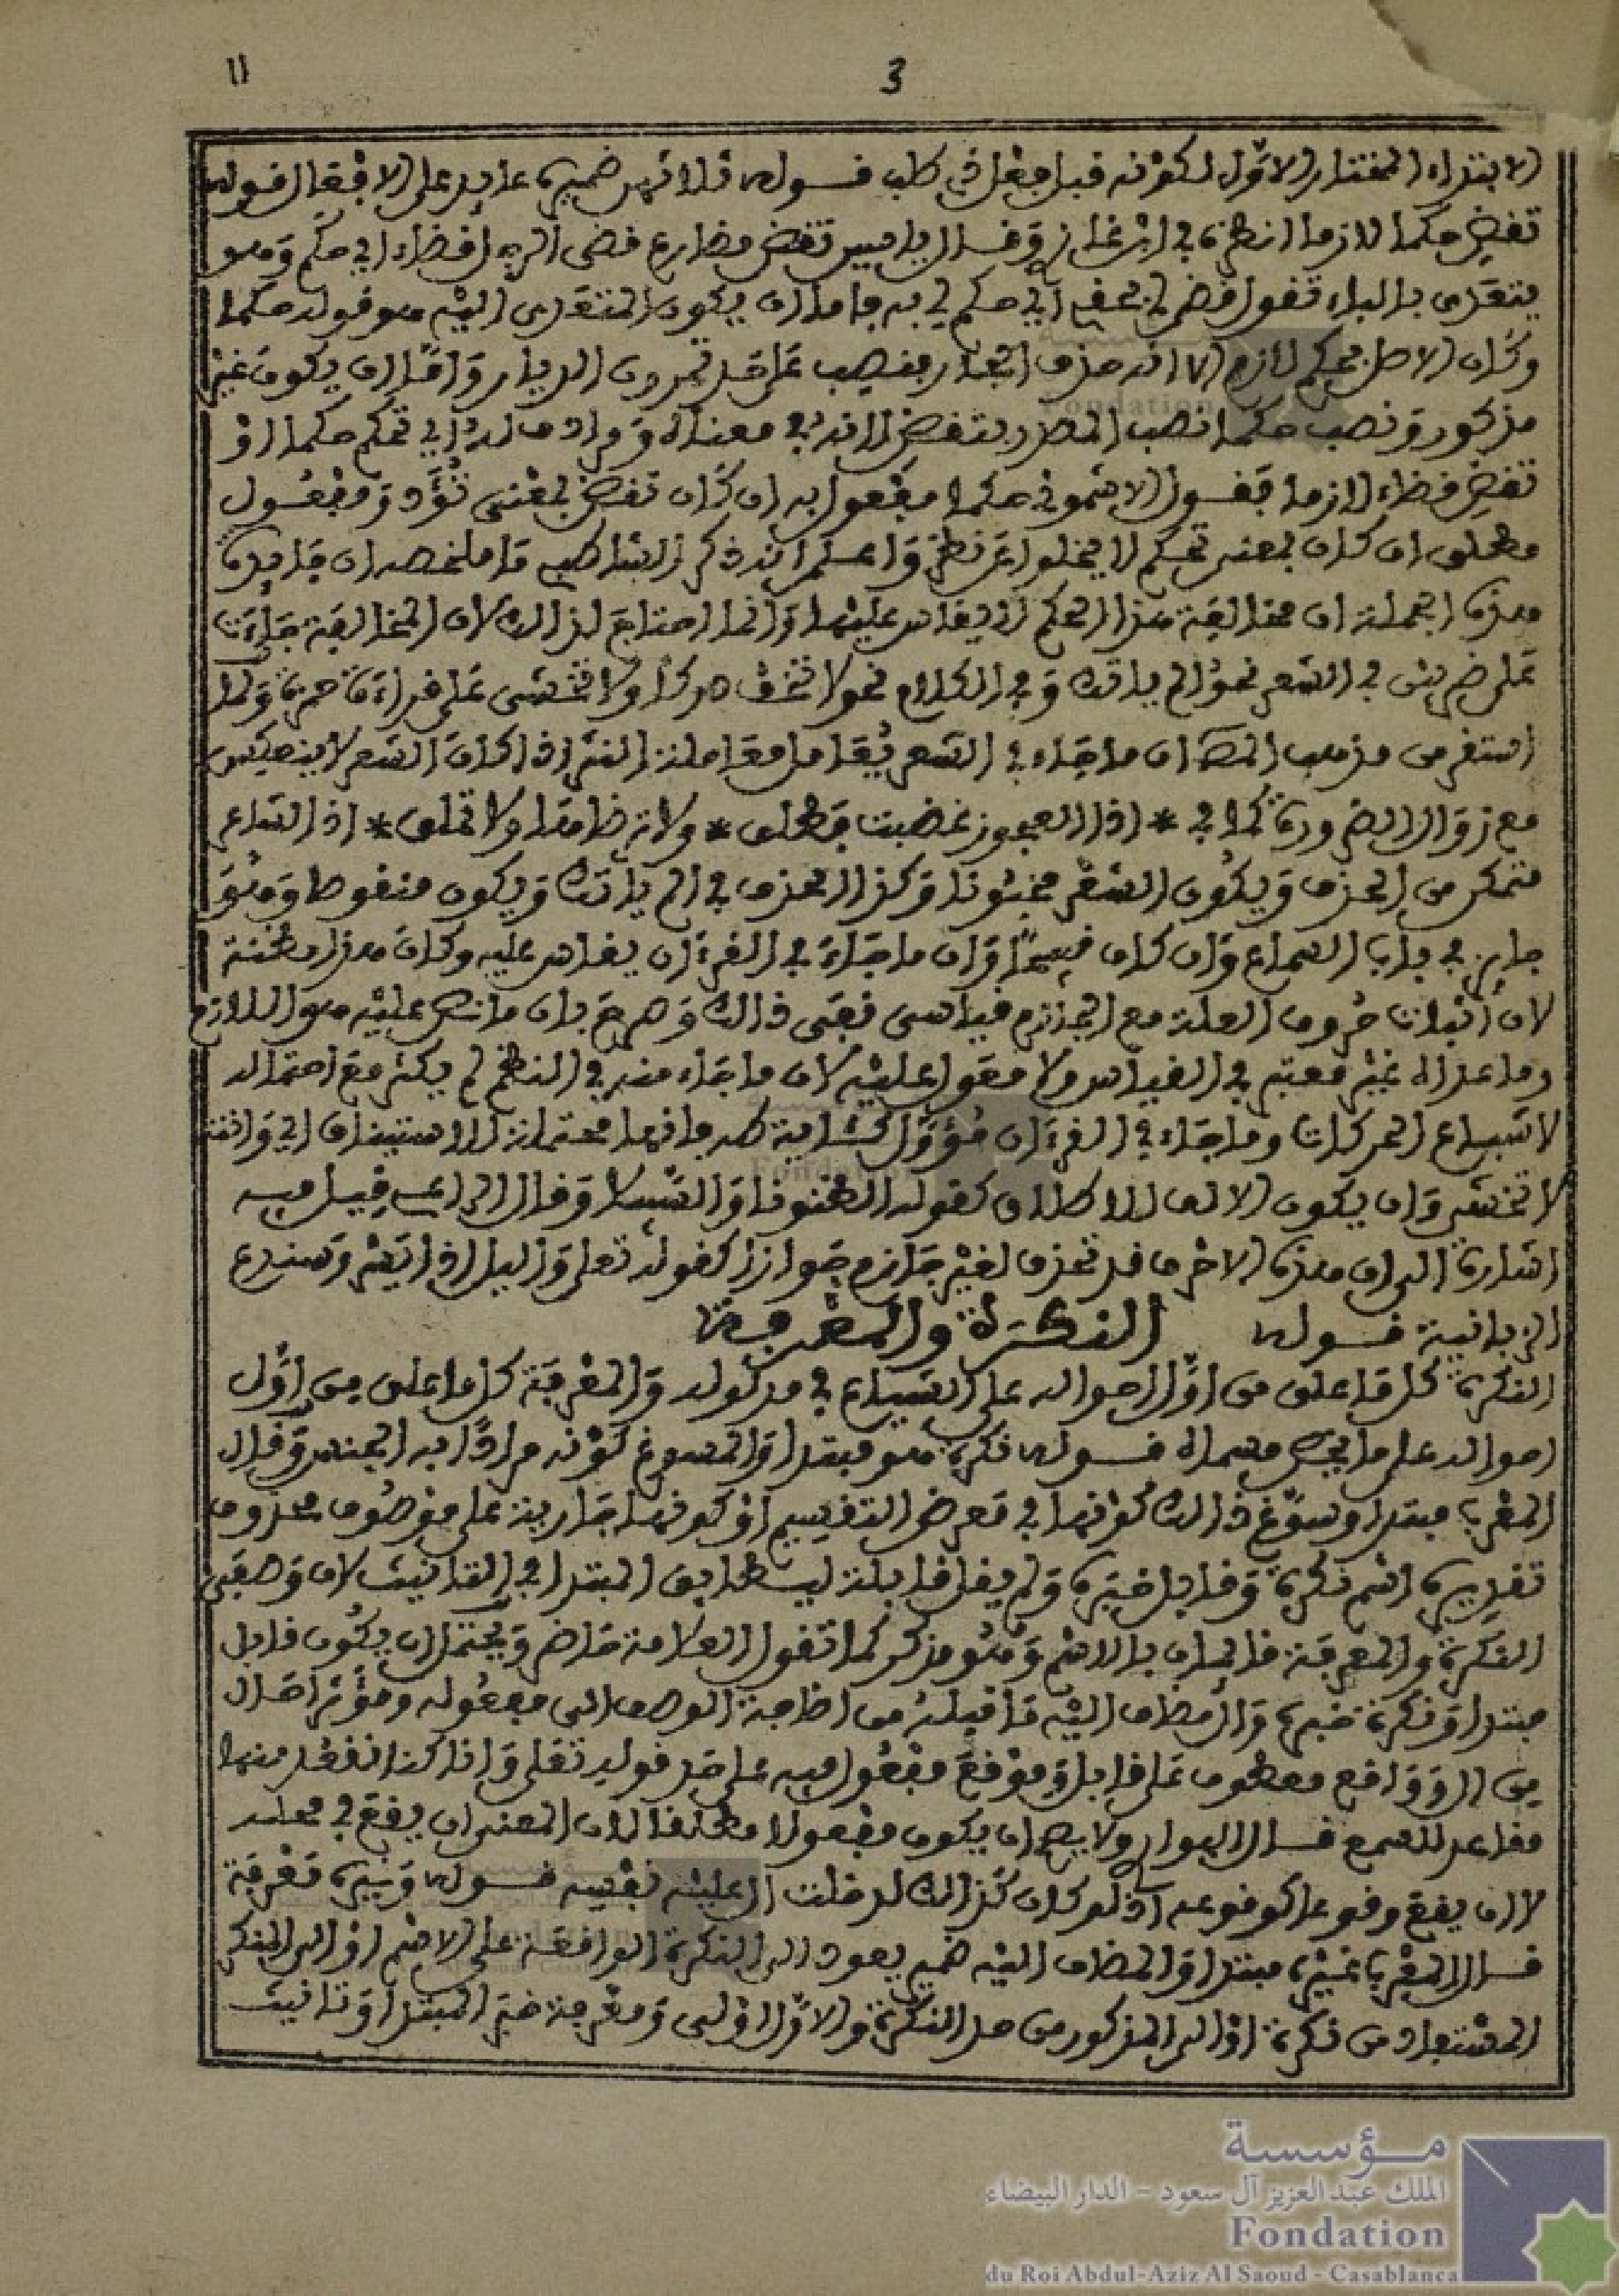 3
11
الابتداء المختار الاول لكونه قبل فعل في طلب قوله ثلاثهن ضميره عايد على الافعال قوله
تقض حكما لازما انظره في ابن غاز وقال ياسين تقض مضارع قضى اليه افضاء اي حكم وهو
يتعدى بالباء تقول قضى لي بحقي اي حكم لي به فاما ان يكون المتعدى اليه هو قوله حكما
وكان الاصل بحكم لازم الا انه حذف الجار فنصب على حد تمرون الديار واما ان يكون غير
مذكور ونصب حكما نصب المصدر بتقض لانه في معناه ومرادف له اي تحكم حكما او
تقض قضاء لازما فقول الاشموني حكما مفعول به ان كان تقض بمعنى تؤد ومفعول
مطلق ان كان بمعنى تحكم لا يخلوا عن نظر واعلم انه ذكر الشاطبي ما ملخصه ان فايدة
هذه الجملة ان مخالفة هذا الحكم لا يقاس عليها وانما احتاج لذالك لان المخالفة جاءت
على ضربين في الشعر نحو الم ياتك وفي الكلام نحو لا تخف دركا ولا تخشى على قراءة حمزة ولما
استقر من مذهب المص ان ما جاء في الشعر يعامل معاملة النثر اذا كان الشعر لا ينعكس
مع زوال الضرورة كما في * اذا العجوز غضبت فطلق * ولا ترضاها ولا تملق * اذ الشاعر
متمكن من الحذف ويكون الشعر مخبونا وكذا الحذف في الم ياتك ويكون منقوصا وهو
جايز في باب السماع وان كان قبيحا وان ما جاء في القرءان يقاس عليه وكان هذا مظنة
لان اثبات حروف العلة مع الجازم قياسي نفى ذالك وصرح بان ما نص عليه هو اللازم
وما عداه غير معتبر في القياس ولا معول عليه لان ما جاء منه في النظم لم يكثر مع احتماله
لاشباع الحركات وما جاء في القرءان مؤول كشاية طه فانها محتملة الاستيناف اي وانت
لا تخشى وان يكون الالف للاطلاق كقوله الظنونا والسبيلا وقال الراعي قيل فيه
اشارة الى ان هذه الاحرف قد تحذف لغير جازم جوازا كقوله تعلى واليل اذا يسر وسندع
الزبانية قوله النكرة والمعرفة
النكرة كل ما علق من اول احواله على الشياع في مدلوله والمعرفة كل ما علق من اول
احواله على ما يخص مسماه قوله نكرة هو مبتدا والمسوغ كونه مرادا به الجنس وقال
المغرب مبتدا وسوغ ذالك كونها في معرض التقسيم او كونها جارية على موصوف محذوف
تقديره اسم نكرة وقابل خبره ولم يقل قابلة ليطابق المبتدا في التانيث لان وصفي
النكرة والمعرفة غالبان بالاسم وهو مذكر كما تقول العلامة حاضر ويحتمل ان يكون قابل
مبتدا ونكرة خبره وال مضاف اليه ما قبله من اضافة الوصف الى مفعوله ومؤثرا حال
من ال وواقع معطوف على قابل وموقع مفعول فيه على حد قوله تعلى وانا كنا نقعد منها
مقاعد للسمع قال الهواري ولا يصح ان يكون مفعولا مطلقا لان المعنى ان يقع في محله
لا ان يقع وقوعا كوقوعه اذ لو كان كذالك لدخلت ال عليه نفسه قوله وغيره معرفة
قال المغرب غيره مبتدا والمضاف اليه ضمير يعود الى النكرة الواقعة على الاسم او الى المنكر
المستفاد من نكرة او الى المذكور من حد النكرة والاول اولى ومعرفة خبر المبتدا وتانيث
مؤسسة
الملك عبد العزيز آل سعود - الدار البيضاء
Fondation
du Roi Abdul-Aziz Al Saoud - Casablanca